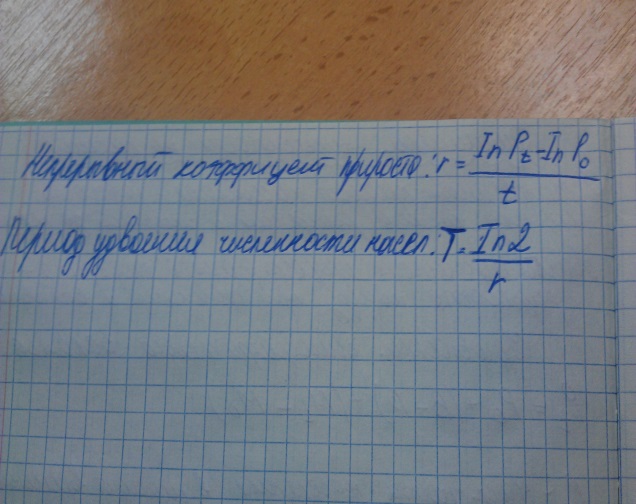 Непрерывный коэффицент прироста: r = In Pt - In P0 / t
Период удвоения численности насел.: T = In2 / r